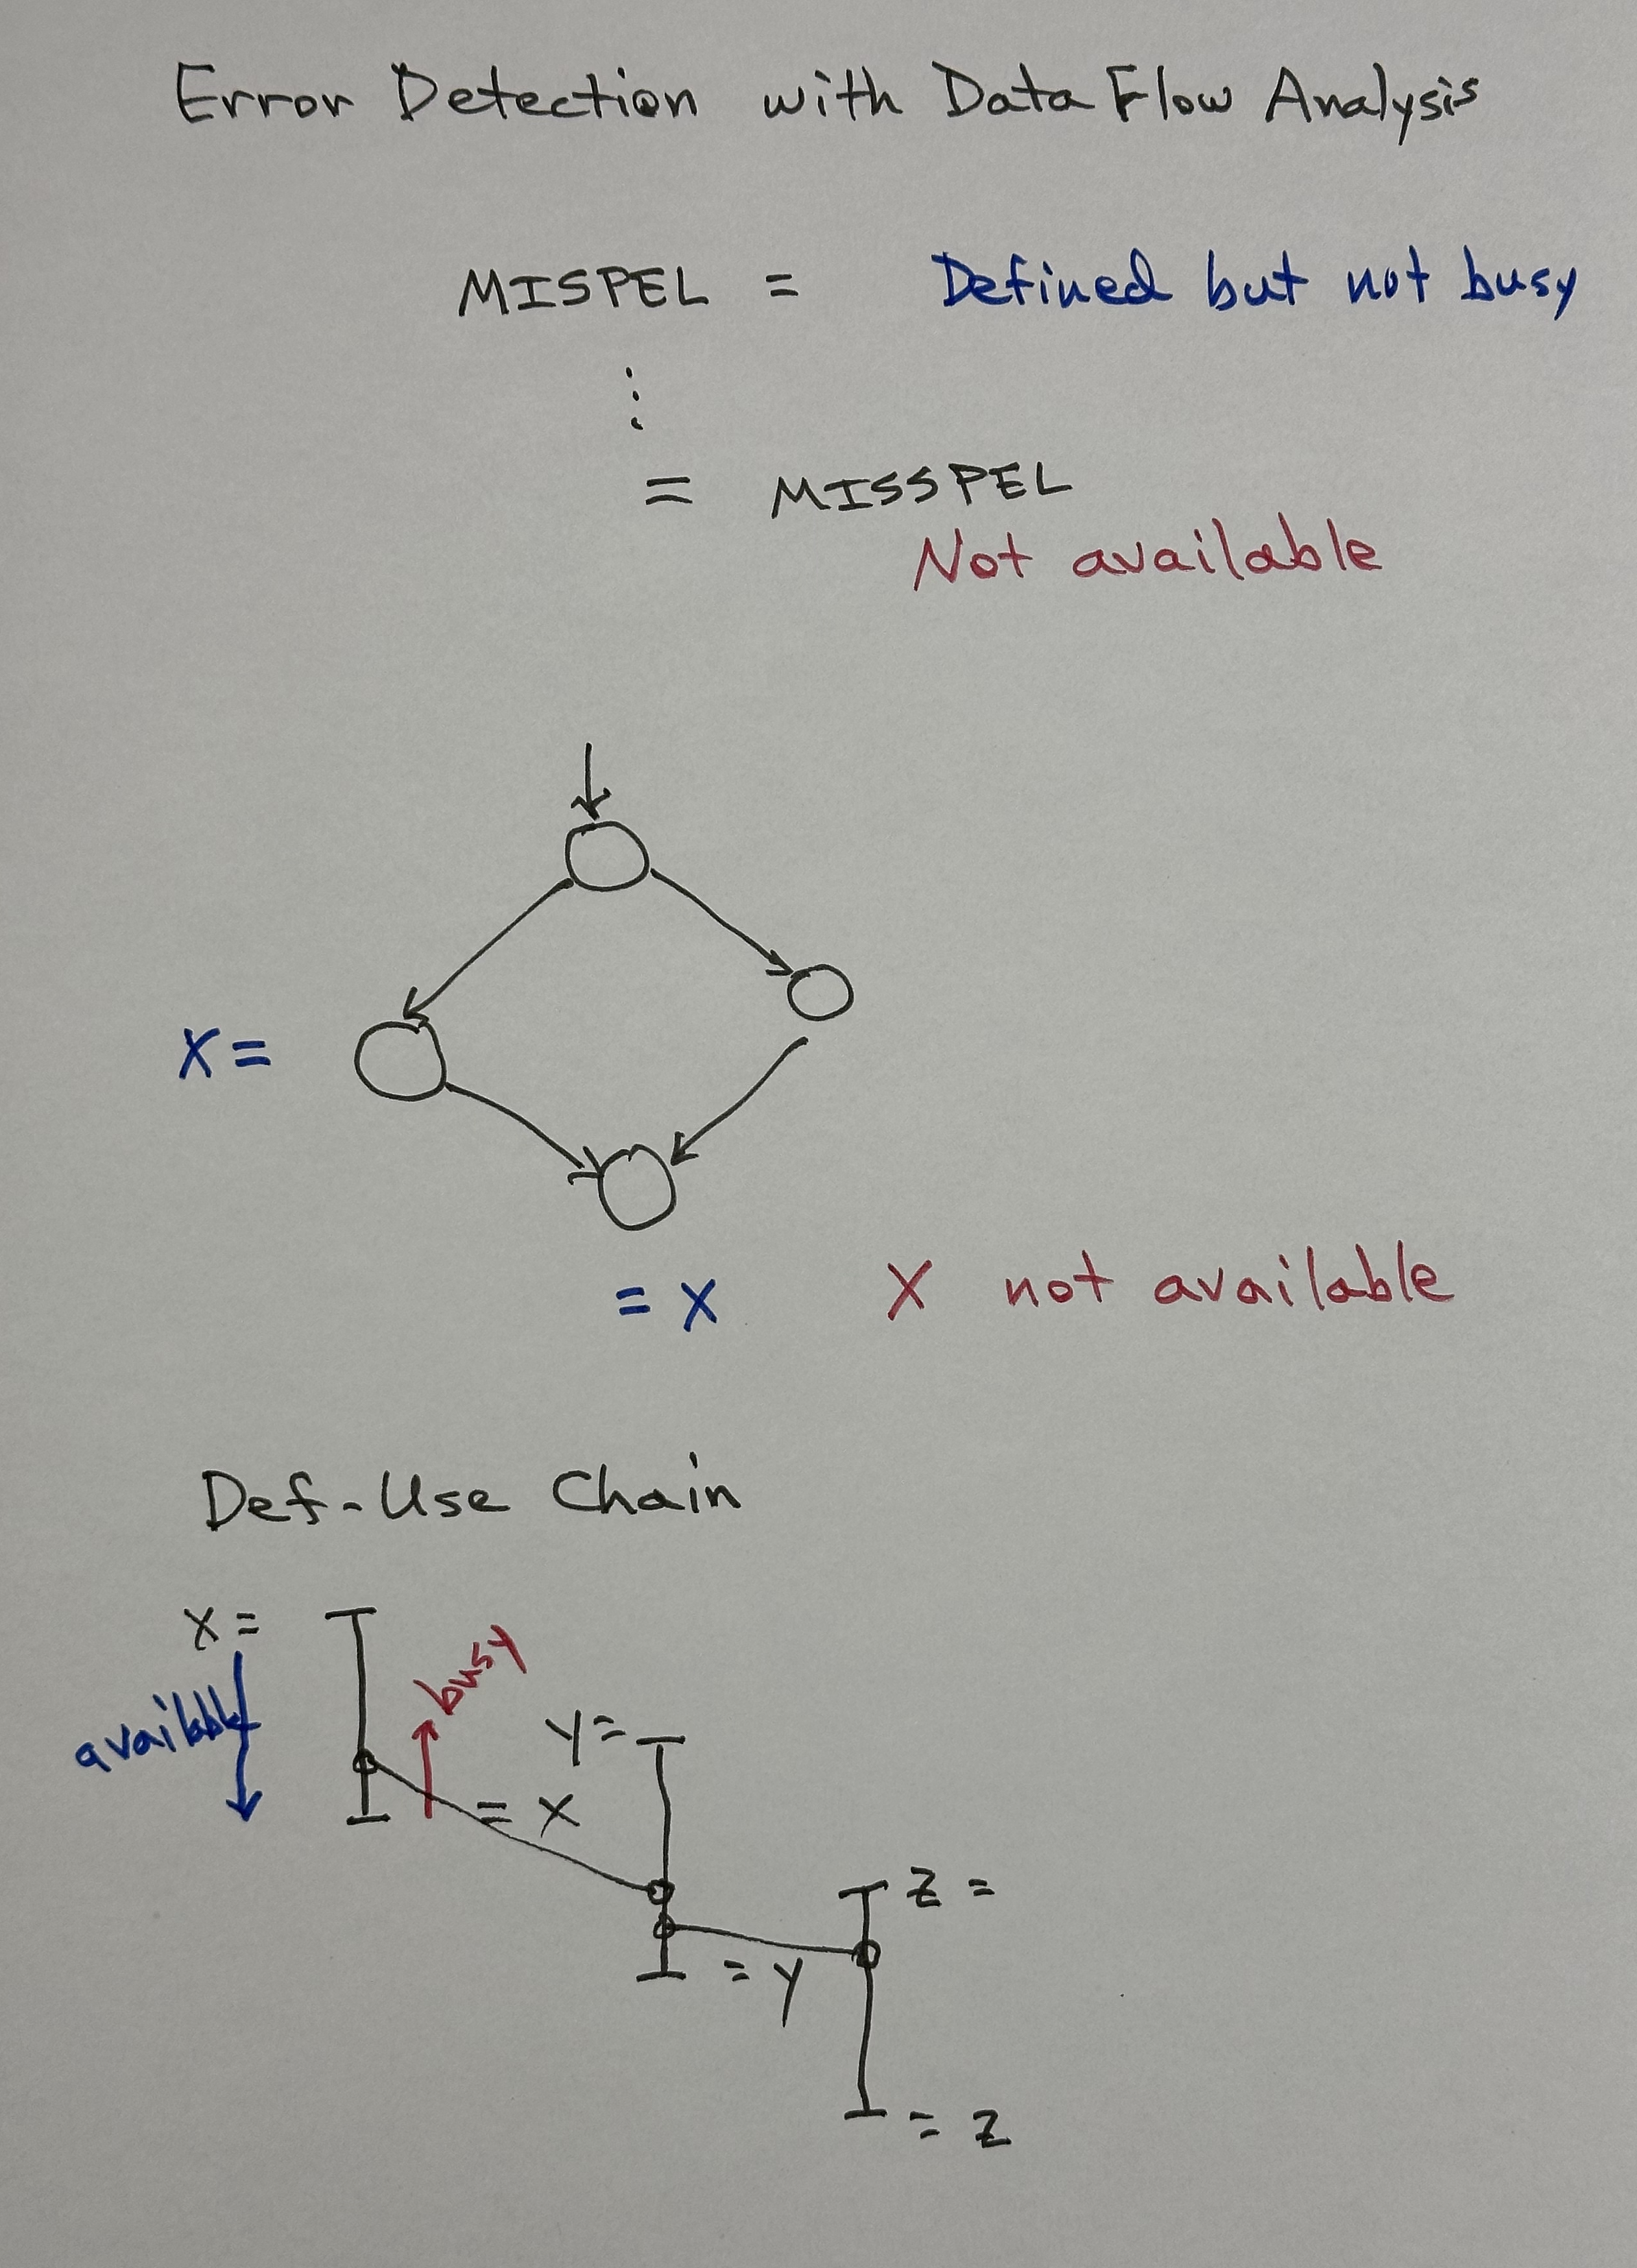 Error Detection with Data Flow Analysis
MISPEL = Defined but not busy
⋮
= MISSPEL
Not available
X =
= X X not available
Def-Use Chain
X =
busy
available
Y =
= X
Z =
= Y
= Z